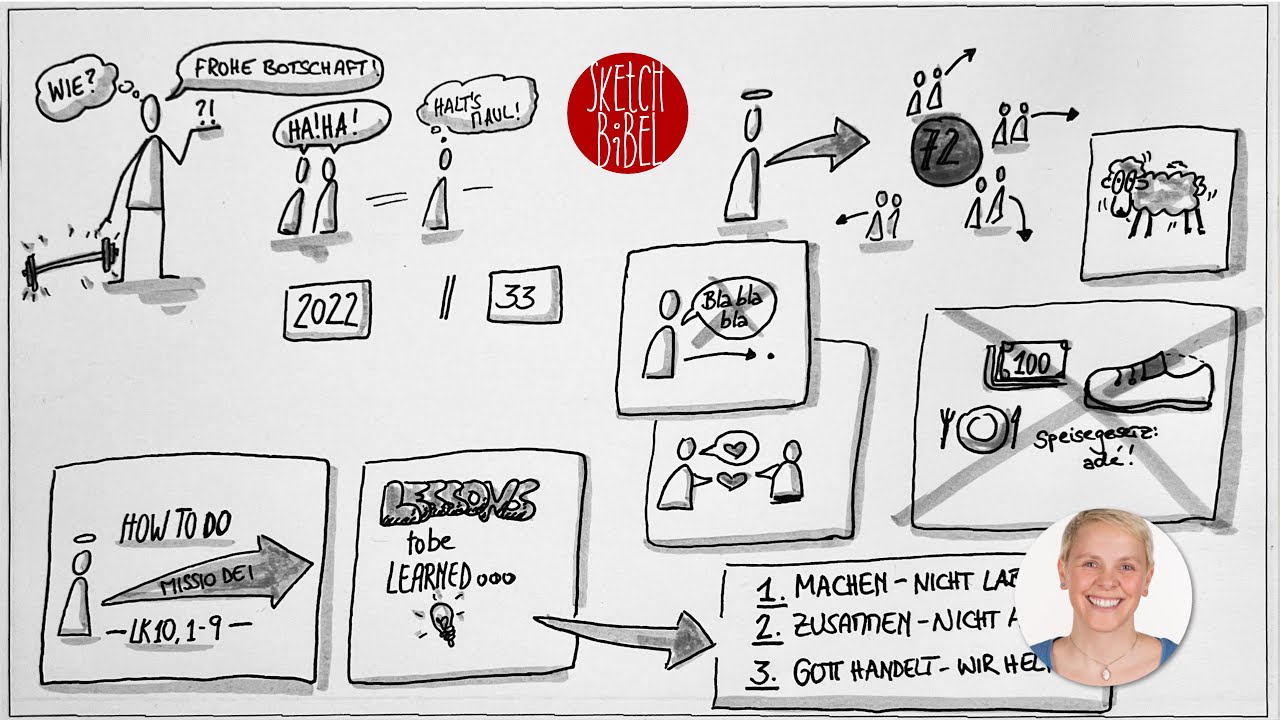 WIE?
FROHE BOTSCHAFT!
?!
HA!HA!
HALT'S
MAUL!
2022
33
SKETCH
BiBEL
72
Bla bla
bla
100
Speisegesetz:
adé!
HOW TO DO
MISSIO DEI
LK10, 1-9
LESSONS
to be
LEARNED...
1. MACHEN - NICHT
2. ZUSAMMEN - NICHT
3. GOTT HANDELT - WIR